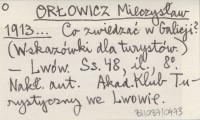 ORŁOWICZ Mieczysław
1913... Co zwiedzać w Galicji?
(Wskazówki dla turystów.)
– Lwów. Ss. 48, il., 8°.
Nakł. aut. Akad. Klub Tu-
rystyczny we Lwowie.